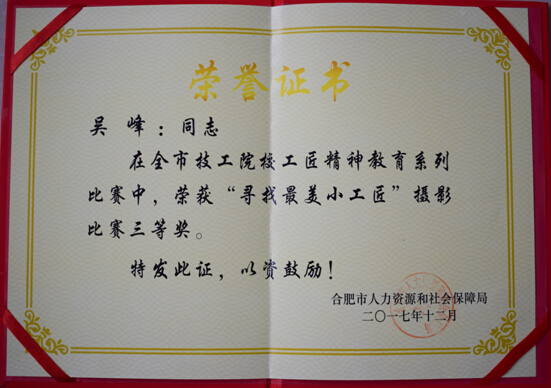 荣誉证书
吴峰：同志
在全市技工院校工匠精神教育系列
比赛中，荣获“寻找最美小工匠”摄影
比赛三等奖。
特发此证，以资鼓励！
合肥市人力资源和社会保障局
二〇一七年十二月